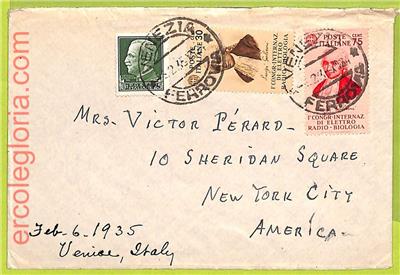 ercolegloria.com
VENEZIA
FERROVIA
POSTE ITALIANE
CENT 30
Iº CONGR·INTERNAZ
DI ELETTRO
RADIO-BIOLOGIA
VENEZIA
FERROVIA
POSTE ITALIANE
CENT 75
Iº CONGR·INTERNAZ
DI ELETTRO
RADIO-BIOLOGIA
MRS. VICTOR PÉRARD.
10 SHERIDAN SQUARE
NEW YORK CITY
AMERICA.
Feb-6-1935
Venice, Italy